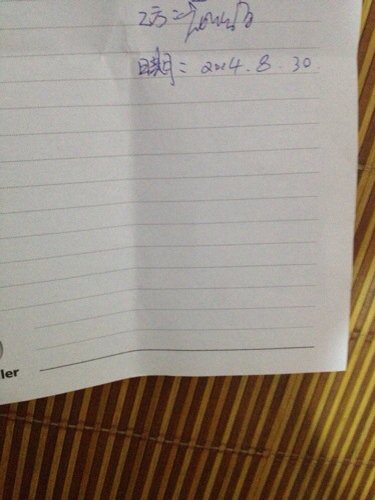 乙方：
日期：2014.8.30
ler